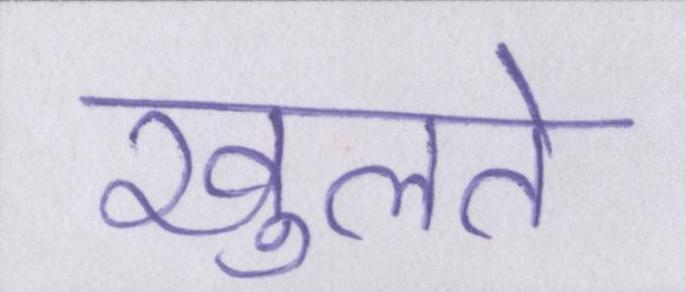 खुलते